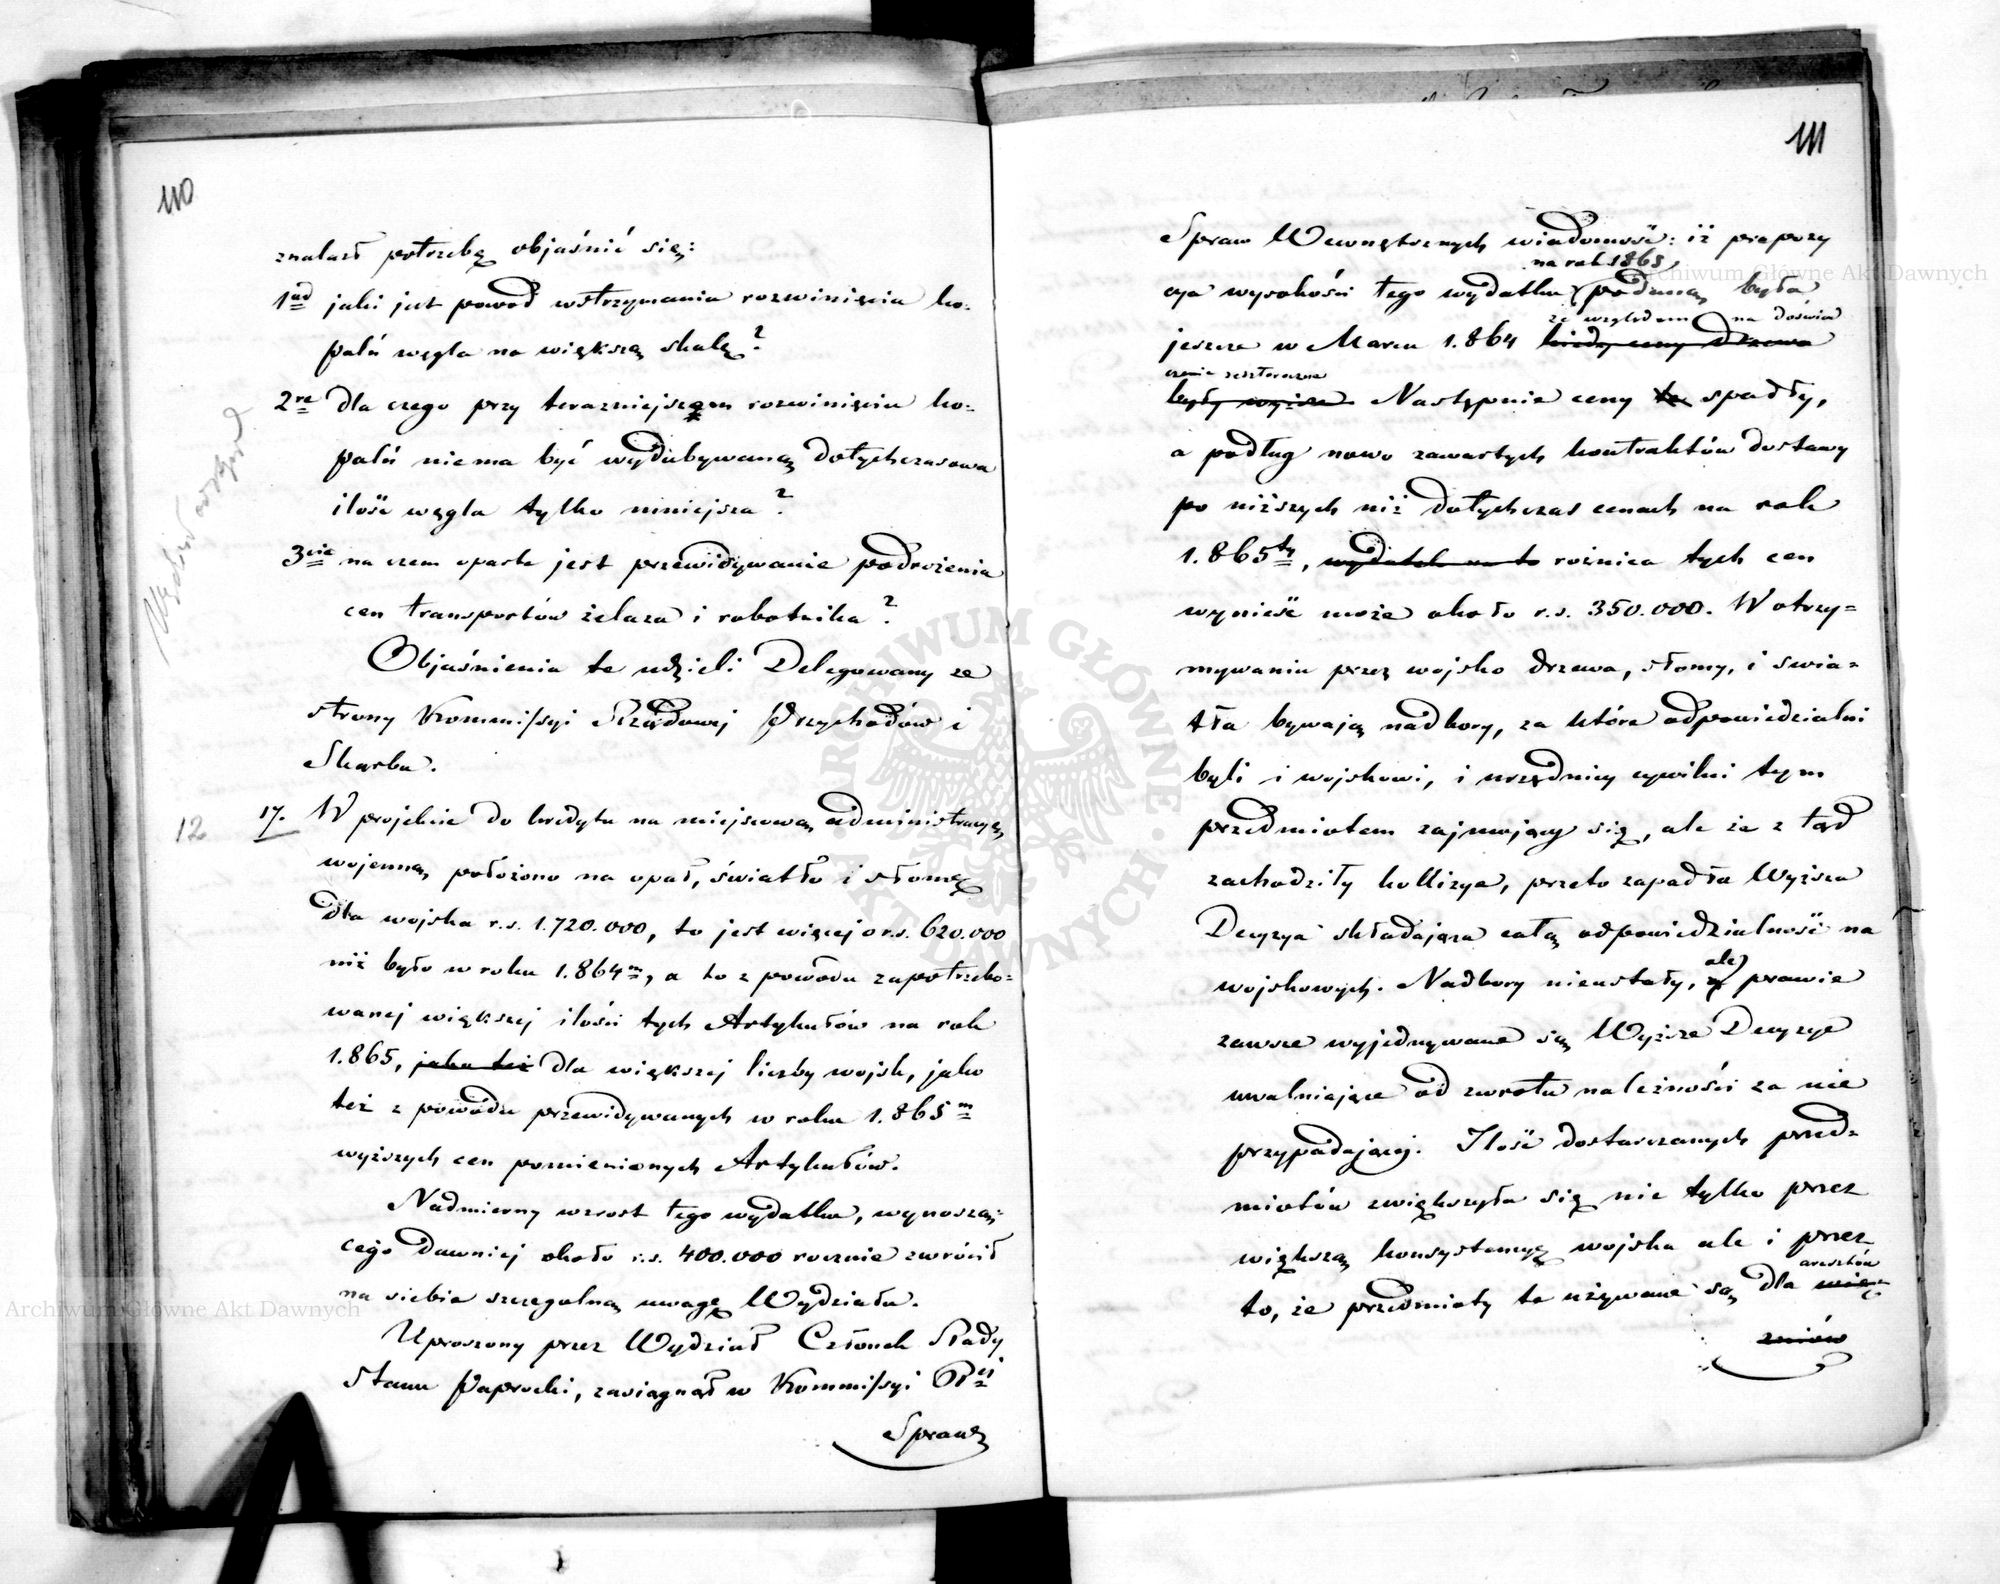 110
znalazł potrzebę objaśnić się:
1ud jaki jest powód wstrzymania rozwinięcia ko-
palń węgla na większą skalę?
2re dla czego przy teraźniejszem rozwinięciu ko-
palń niema być wydobywaną dotychczasowa
ilość węgla tylko mniejsza?
3cie na czem oparte jest przewidywanie podrożenia
cen transportów żelaza i robotnika?
Objaśnienia te udzieli Delegowany ze
strony Kommissyi Rządowej Przychodów i
Skarbu.
12
17. W projekcie do kredytu na miejscową administracyę
wojenną, położono na opał, światło i słomę
dla wojska r.s. 1.720.000, to jest więcej o r.s. 620.000
niż było w roku 1.864m, a to z powodu zapotrzebo-
wanej większej ilości tych Artykułów na rok
1.865, jako też dla większej liczby wojsk, jako
też z powodu przewidywanych w roku 1.865m
wyższych cen pomienionych Artykułów.
Nadmierny wzrost tego wydatku, wynoszą-
cego dawniej około r.s. 400.000 rocznie zwrócił
na siebie szczególną uwagę Wydziału.
Uproszony przez Wydział Członek Rady
Stanu Paprocki, zasiągnął w Kommissyi Rej
Spraw
111
Spraw Wewnętrznych wiadomość: iż propozy
na rok 1865
cya wysokości tego wydatku podaną była
ze względem na doświad
jeszcze w Marcu 1.864 kiedy ceny drzewa
czenie zeszłoroczne
były wyższe. Następnie ceny te spadły,
a podług nowo zawartych kontraktów dostawy
po niższych niż dotychczas cenach na rok
1.865ty, wydatek na to różnica tych cen
wynieść może około r.s. 350.000. W otrzy-
mywaniu przez wojsko drzewa, słomy, i świa-
tła bywają nadbory, za które odpowiedzialni
byli i wojskowi, i urzędnicy cywilni tym
przedmiotem zajmujący się, ale że z tąd
zachodziły kollizye, przeto zapadła Wyższa
Decyzya składająca całą odpowiedzialność na
wojskowych. Nadbory nieustały, ale prawie
zawsze wyjednywane są Wyższe Decyzye
uwalniające od zwrotu należności za nie
przypadającej. Ilość dostarczanych przed-
miotów zwiększyła się nie tylko przez
większą konsystencyę wojska ale i przez
aresztów
to, że przedmioty te używane są dla wię-
zniów
Archiwum Główne Akt Dawnych
Archiwum Główne Akt Dawnych
ARCHIWUM GŁÓWNE AKT DAWNYCH